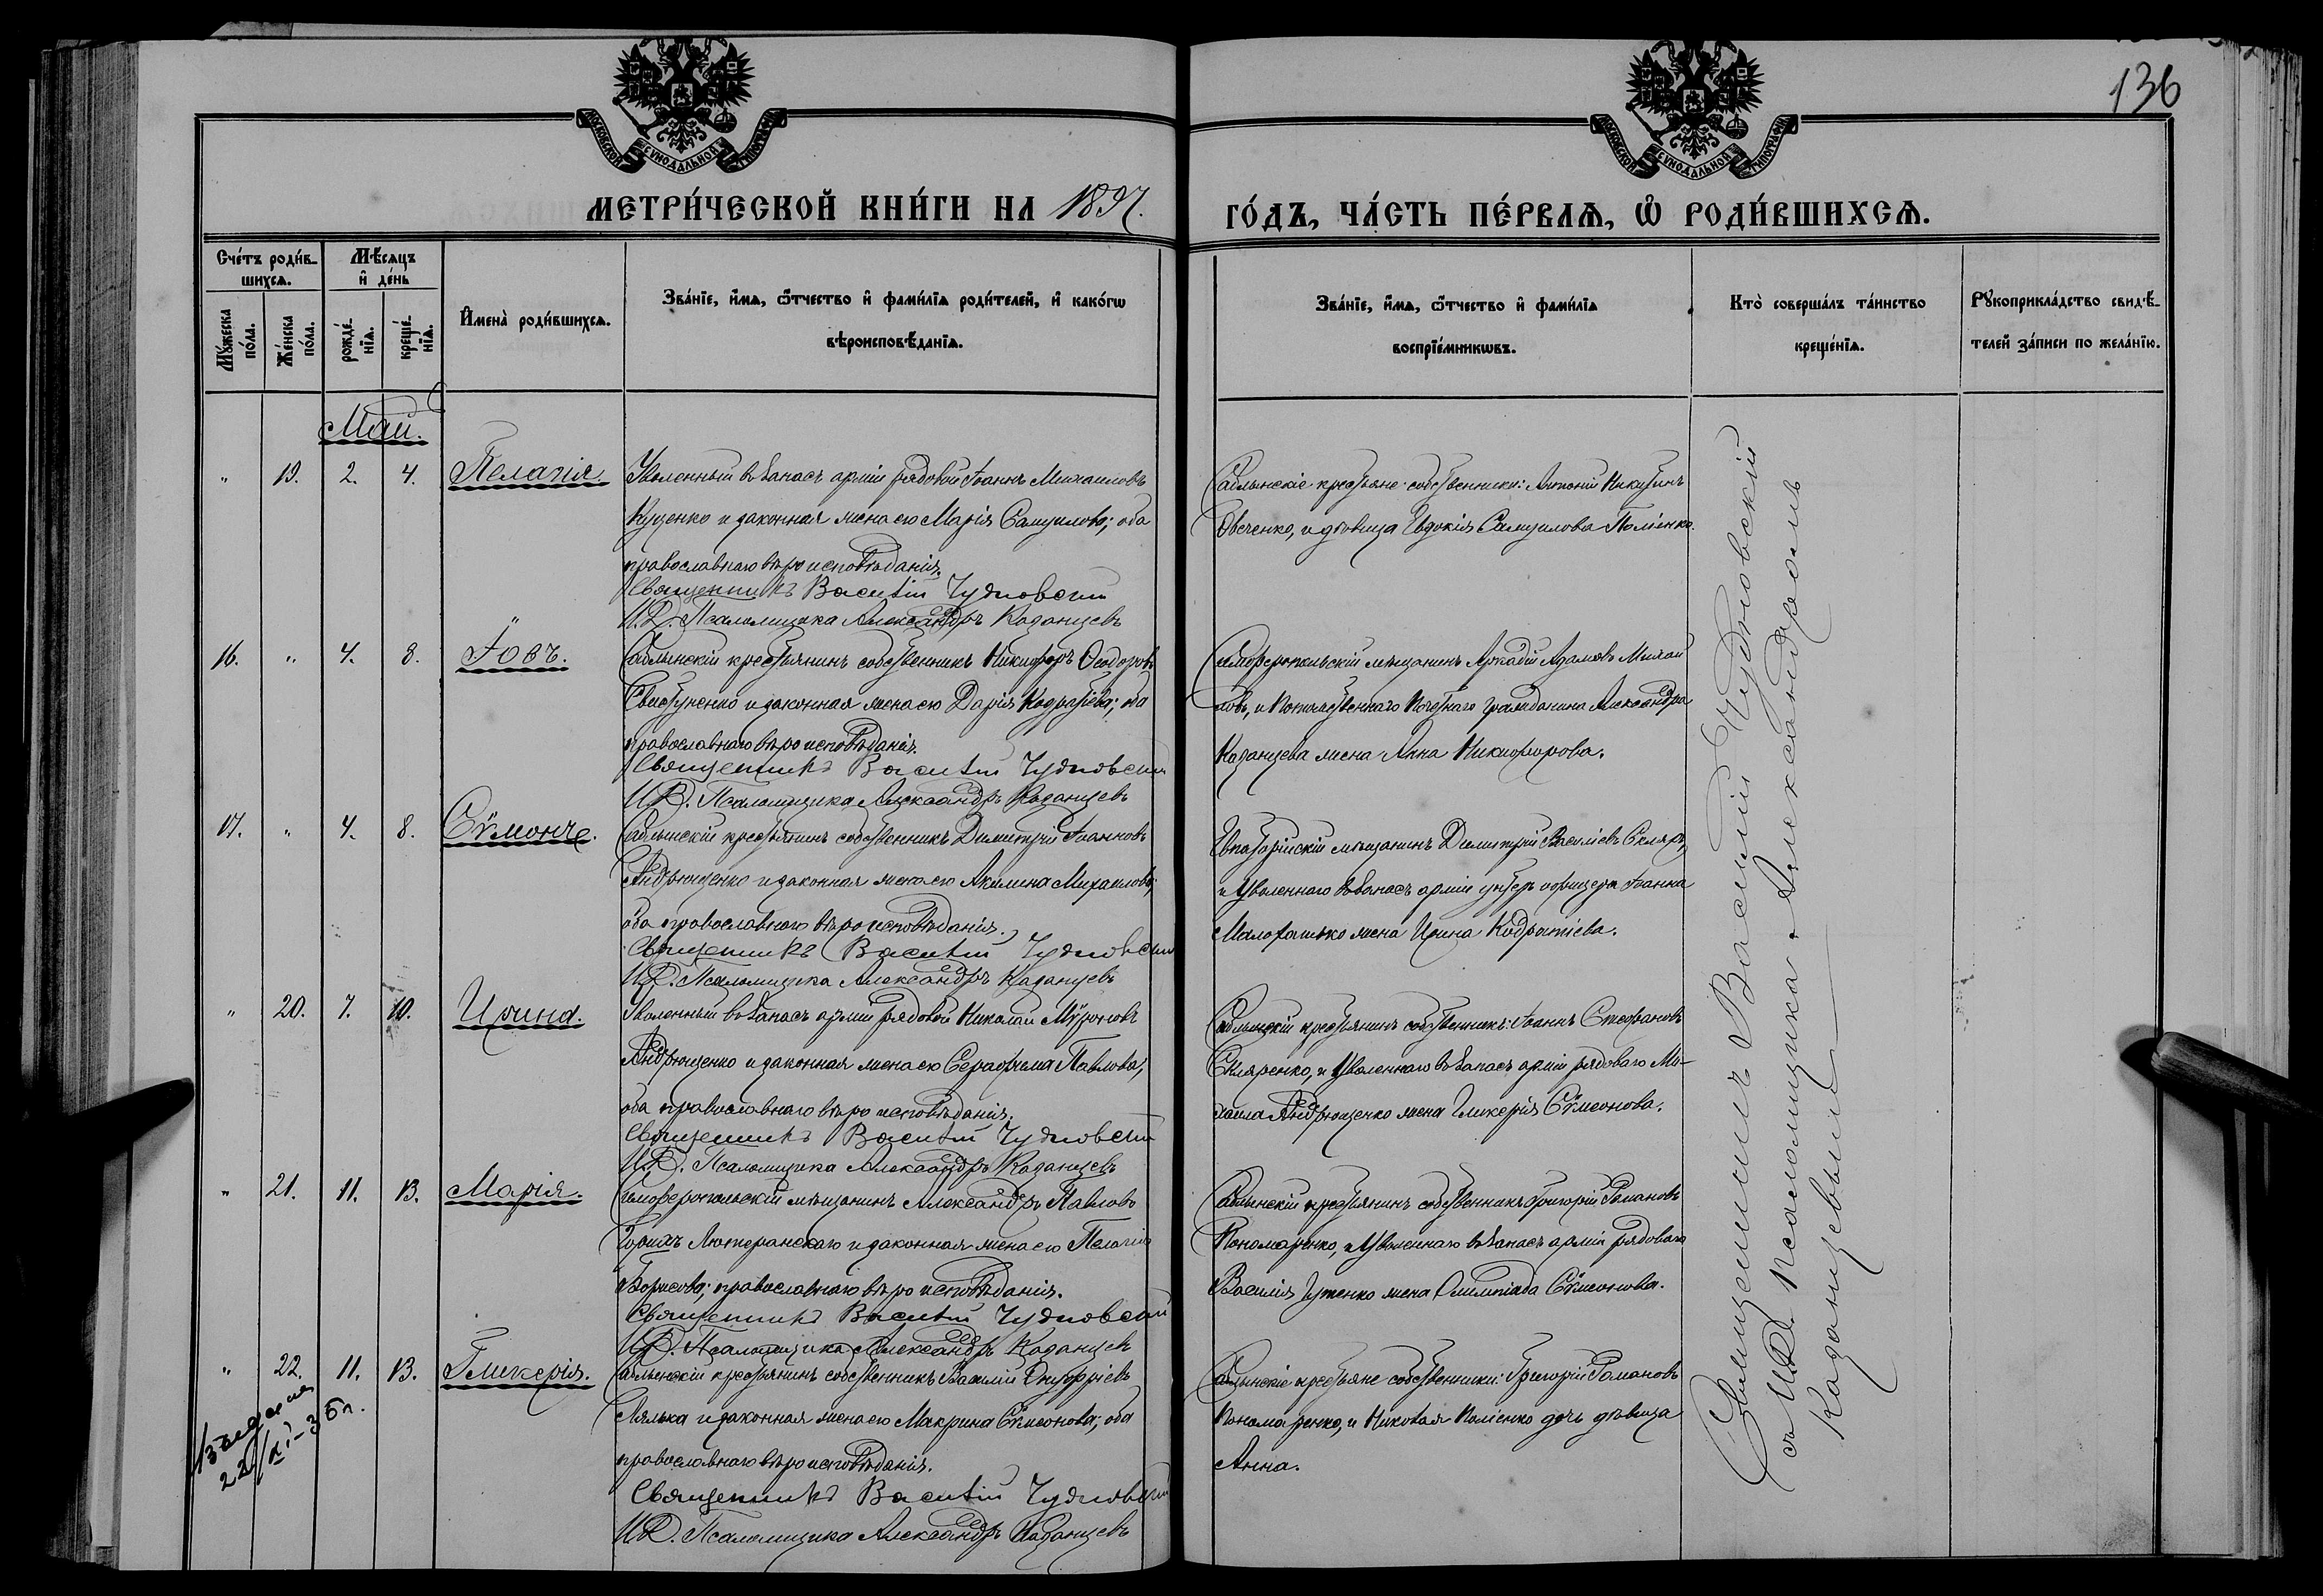 136
МОСКОВСКОЙ СУНОДАЛЬНОЙ ТИПОГРАФІИ
МОСКОВСКОЙ СУНОДАЛЬНОЙ ТИПОГРАФІИ
МЕТРИ́ЧЕСКОЙ КНИ́ГИ НА 1897. ГО́ДЪ, ЧА́СТЬ ПЕ́РВАѦ, Ѡ РОДИ́ВШИХСѦ.
Сче́тъ роди́в-
шихсѧ.
Мꙋ́жеска по́ла.
Же́нска по́ла.
Мѣ́сѧцъ
и҆ де́нь
рожде́-
нїѧ.
креще́-
нїѧ.
И҆мена̀ роди́вшихсѧ.
Зва́нїе, и҆́мѧ, ѻ҆́тчество и҆ фами́лїѧ роди́телей, и҆ како́гѡ
вѣроисповѣ́данїѧ.
Зва́нїе, и҆́мѧ, ѻ҆́тчество и҆ фами́лїѧ
воспрїе́мникѡвъ.
Кто̀ соверша́лъ та́инство
креще́нїѧ.
Рꙋкоприкла́дство свидѣ́-
телей за́писи по жела́нїю.
Май.
" 19. 2. 4. Пелагія.
Уволенный въ запасъ арміи рядовой Іоаннъ Михаиловъ
Куценко и законная жена его Марія Самуилова; оба
православнаго вѣроисповѣданія.
Священникъ Василій Чудновский
И.Д. Псаломщика Александръ Казанцевъ
Саблынскіе крестьяне собственники: Антоній Никитинъ
Овсченко, и дѣвица Евдокія Самуилова Поліенко.
16. " 4. 8. Іовъ.
Саблынскій крестьянинъ собственникъ Никифоръ Ѳеодоровъ
Свистуненко и законная жена его Дарія Кодратіева; оба
православнаго вѣроисповѣданія.
Священникъ Василій Чудновский
И.Д. Псаломщика Александръ Казанцевъ
Симферопольскій мѣщанинъ Аркадій Адамовъ Михай
ловъ, и Потомственнаго Почетнаго гражданина Александра
Казанцева жена Анна Никифорова.
17. " 4. 8. Сѵмонъ.
Саблынскій крестьянинъ собственникъ Димитрій Іоанновъ
Андрющенко и законная жена его Акилина Михаилова;
оба православнаго вѣроисповѣданія.
Священникъ Василій Чудновский
И.Д. Псаломщика Александръ Казанцевъ
Евпаторійскій мѣщанинъ Димитрій Василіевъ Скляръ,
и Уволеннаго въ запасъ арміи унтеръ офицера Іоанна
жена Ирина Кодратіева.
" 20. 7. 10. Ирина.
Уволенный въ запасъ арміи рядовой Николай Мѵроновъ
Андрющенко и законная жена его Серафима Павлова;
оба православнаго вѣроисповѣданія.
Священникъ Василій Чудновский
И.Д. Псаломщика Александръ Казанцевъ
Саблынскій крестьянинъ собственникъ: Іоаннъ Стефановъ
Скляренко, и Уволеннаго въ запасъ арміи рядоваго Ми-
хаила Андрющенко жена Гликерія Сѵмеонова.
" 21. 11. 13. Марія.
Симферопольскій мѣщанинъ Александръ Павловъ
Лютеранскаго и законная жена его Пелагія
Борисова; православнаго вѣроисповѣданія.
Священникъ Василій Чудновский
И.Д. Псаломщика Александръ Казанцевъ
Саблынскій крестьянинъ собственникъ Григорій Романовъ
Пономаренко, и Уволеннаго въ запасъ арміи рядоваго
Василія жена Олимпіада Сѵмеонова.
" 22. 11. 13. Гликерія.
Саблынскій крестьянинъ собственникъ Василій Онуфріевъ
Лялька и законная жена его Макрина Сѵмеонова; оба
православнаго вѣроисповѣданія.
Священникъ Василій Чудновский
И.Д. Псаломщика Александръ Казанцевъ
Саблынскіе крестьяне собственники: Григорій Романовъ
Пономаренко, и Николая Поліенко дочь дѣвица
Анна.
22/XI-35 г.
Священникъ Василій Чудновскій
съ И.Д. Псаломщика Александромъ
Казанцевымъ